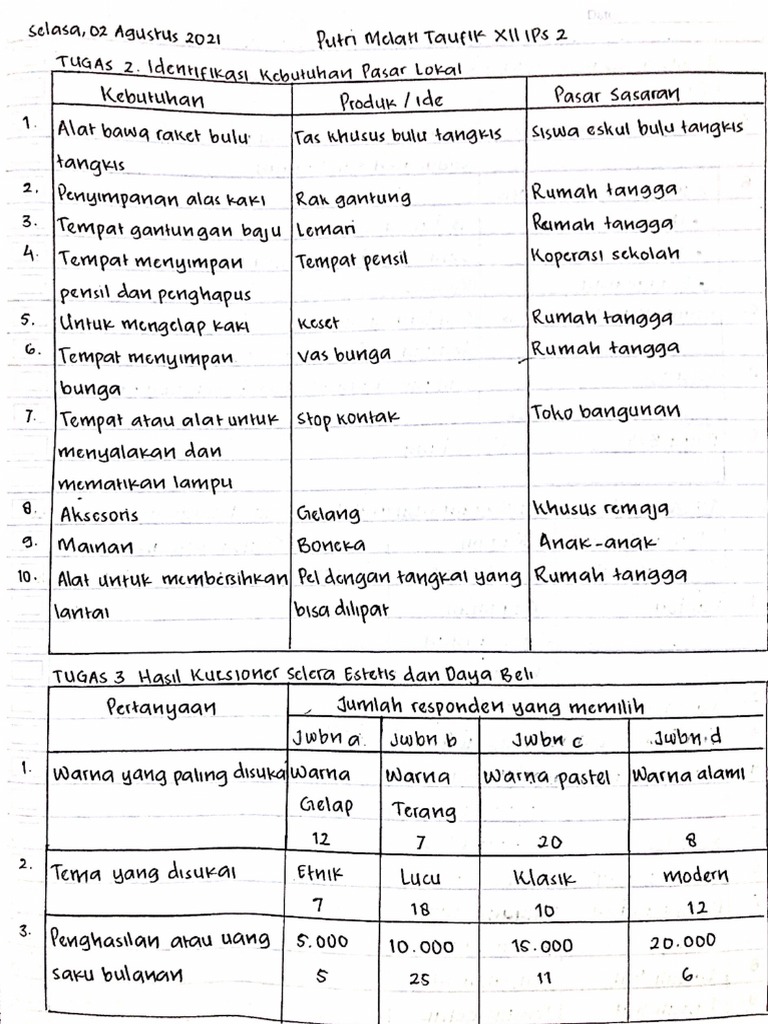 Selasa, 02 Agustus 2021 Putri Melati Taufik XII IPS 2
TUGAS 2. Identifikasi Kebutuhan Pasar Lokal
Kebutuhan Produk / Ide Pasar Sasaran
1. Alat bawa raket bulu tangkis Tas khusus bulu tangkis siswa eskul bulu tangkis
2. Penyimpanan alas kaki Rak gantung Rumah tangga
3. Tempat gantungan baju Lemari Rumah tangga
4. Tempat menyimpan pensil dan penghapus Tempat pensil Koperasi sekolah
5. Untuk mengelap kaki Keset Rumah tangga
6. Tempat menyimpan bunga Vas bunga Rumah tangga
7. Tempat atau alat untuk menyalakan dan mematikan lampu Stop kontak Toko bangunan
8. Aksesoris Gelang Khusus remaja
9. Mainan Boneka Anak-anak
10. Alat untuk membersihkan lantai Pel dengan tangkai yang bisa dilipat Rumah tangga
TUGAS 3 Hasil Kuesioner Selera Estetis dan Daya Beli
Pertanyaan Jumlah responden yang memilih
Jwbn a. Jwbn b Jwbn c Jwbn d
1. Warna yang paling disukai Warna Gelap 12 Warna Terang 7 Warna pastel 20 Warna alami 8
2. Tema yang disukai Etnik 7 Lucu 18 Klasik 10 modern 12
3. Penghasilan atau uang saku bulanan 5.000 5 10.000 25 15.000 11 20.000 6